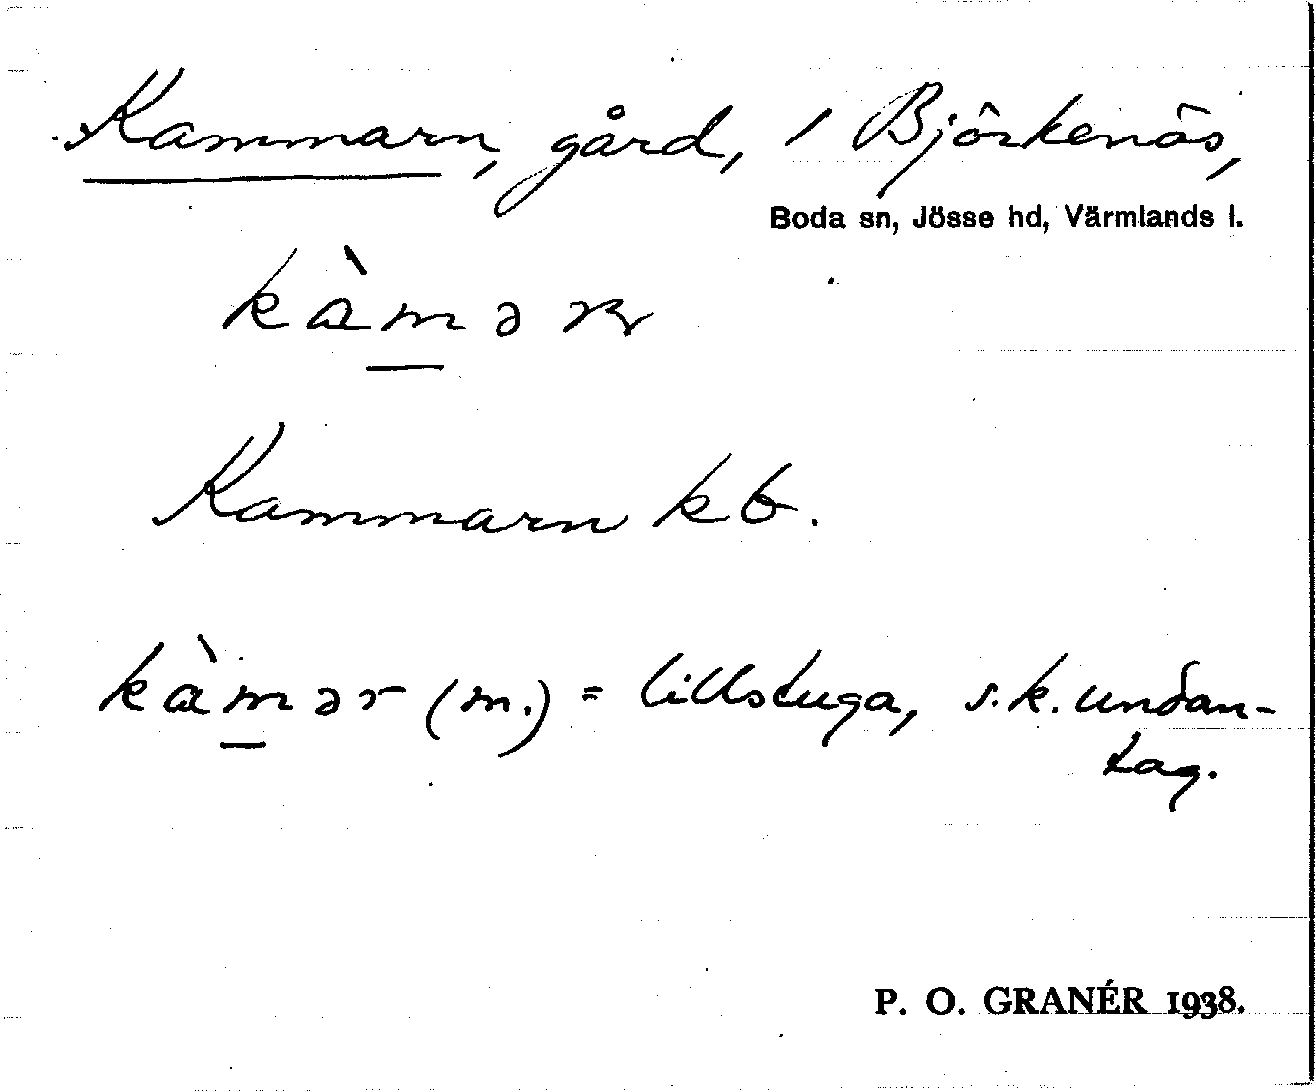 Kammarn, gård, / Björkenäs,
Boda sn, Jösse hd, Värmlands l.
kàmər
Kammarn kb.
kàmər (m.) = lillstuga, s.k. undan-
tag.
P. O. GRANÉR 1938.